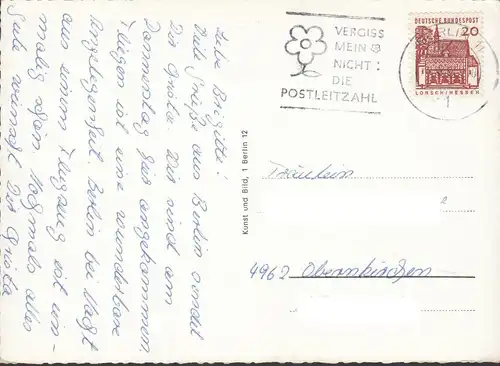 Liebe Brigitte!
Viele Grüße aus Berlin sendet
Dir Gisela. Wir sind am
Donnerstag hier angekommen
Fliegen ist eine wunderbare
Angelegenheit. Berlin bei Nacht
aus einem Flugzeug ist ein-
malig schön. Nochmals alles
Gute wünscht Dir Gisela
Kunst und Bild, 1 Berlin 12
VERGISS
MEIN
NICHT:
DIE
POSTLEITZAHL
DEUTSCHE BUNDESPOST
20
LORSCH/HESSEN
BERLIN
1
Fräulein
4962 Obernkirchen